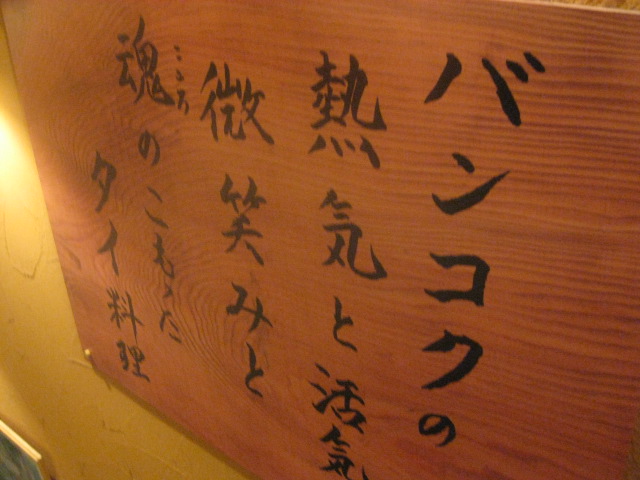 バンコクの
熱気と活気
微笑みと
こころ
魂のこもった
タイ料理